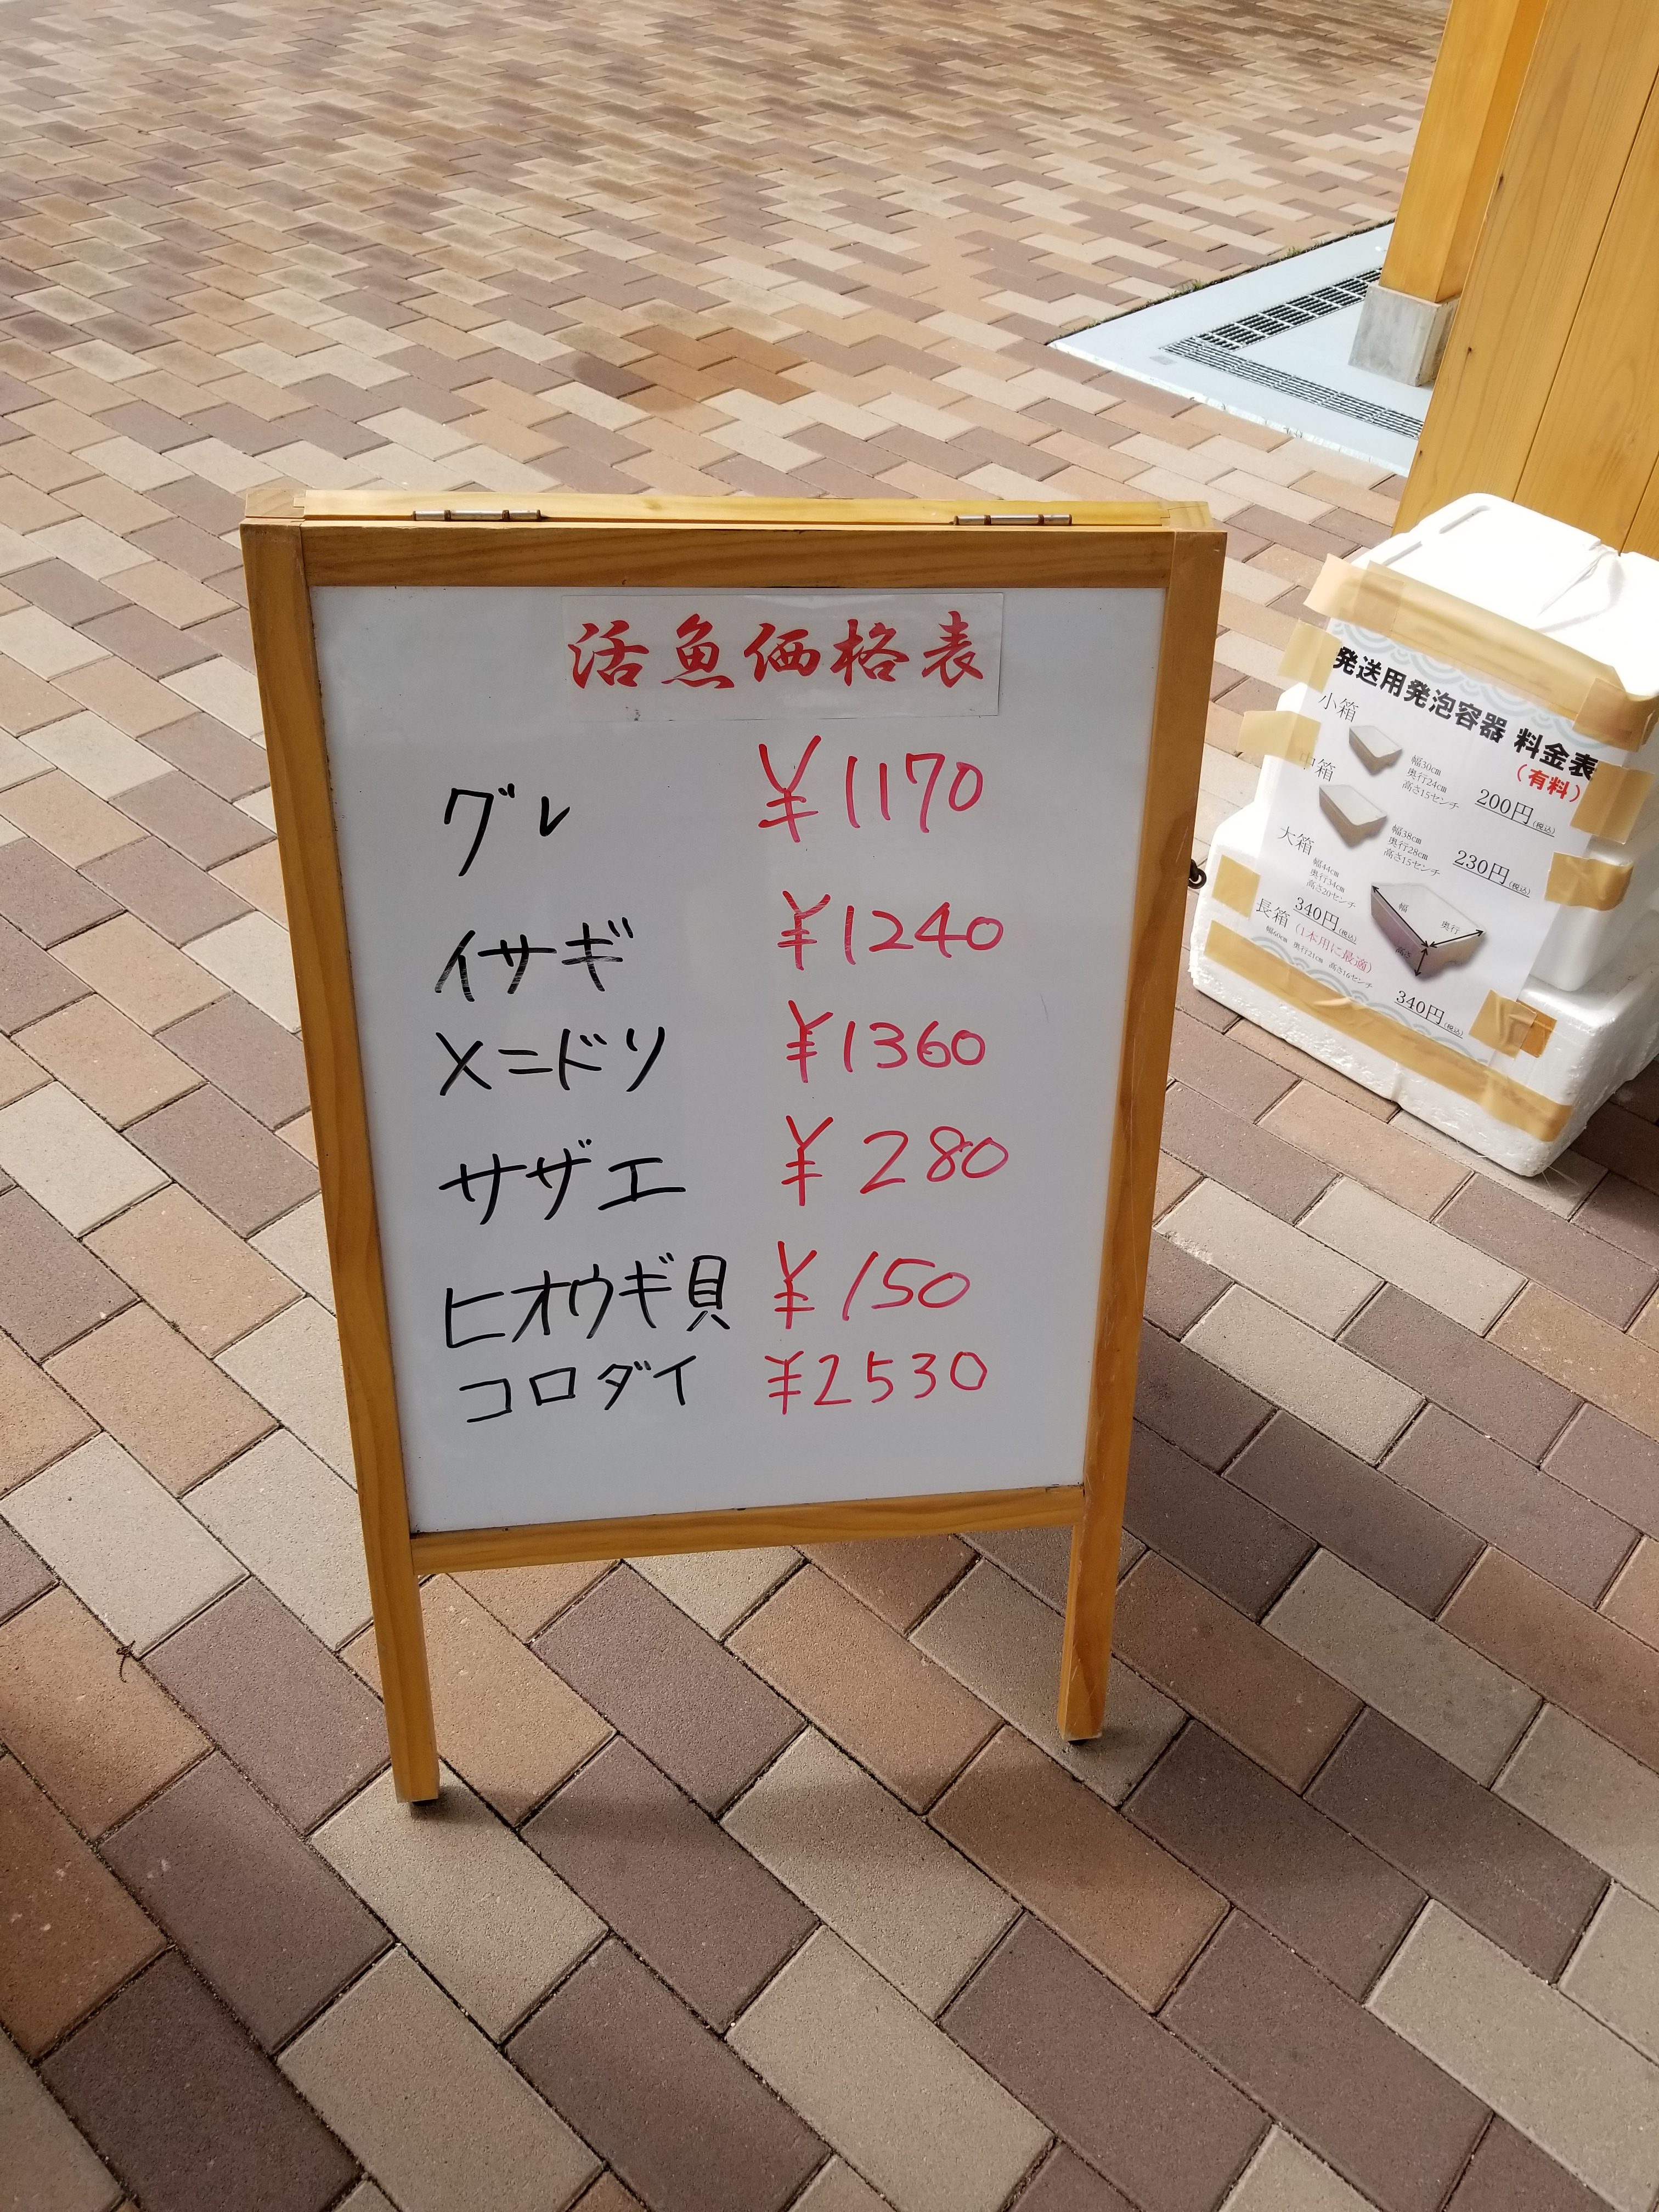 活魚価格表
グレ ¥1170
イサギ ¥1240
メニドリ ¥1360
サザエ ¥280
ヒオウギ貝 ¥150
コロダイ ¥2530
発送用発泡容器 料金表
(有料)
小箱
幅30cm
奥行24cm
高さ15センチ
200円(税込)
中箱
幅38cm
奥行28cm
高さ15センチ
230円(税込)
大箱
幅44cm
奥行34cm
高さ20センチ
340円(税込)
長箱(1本用に最適)
幅60cm 奥行21cm 高さ16センチ
340円(税込)
幅
奥行
高さ